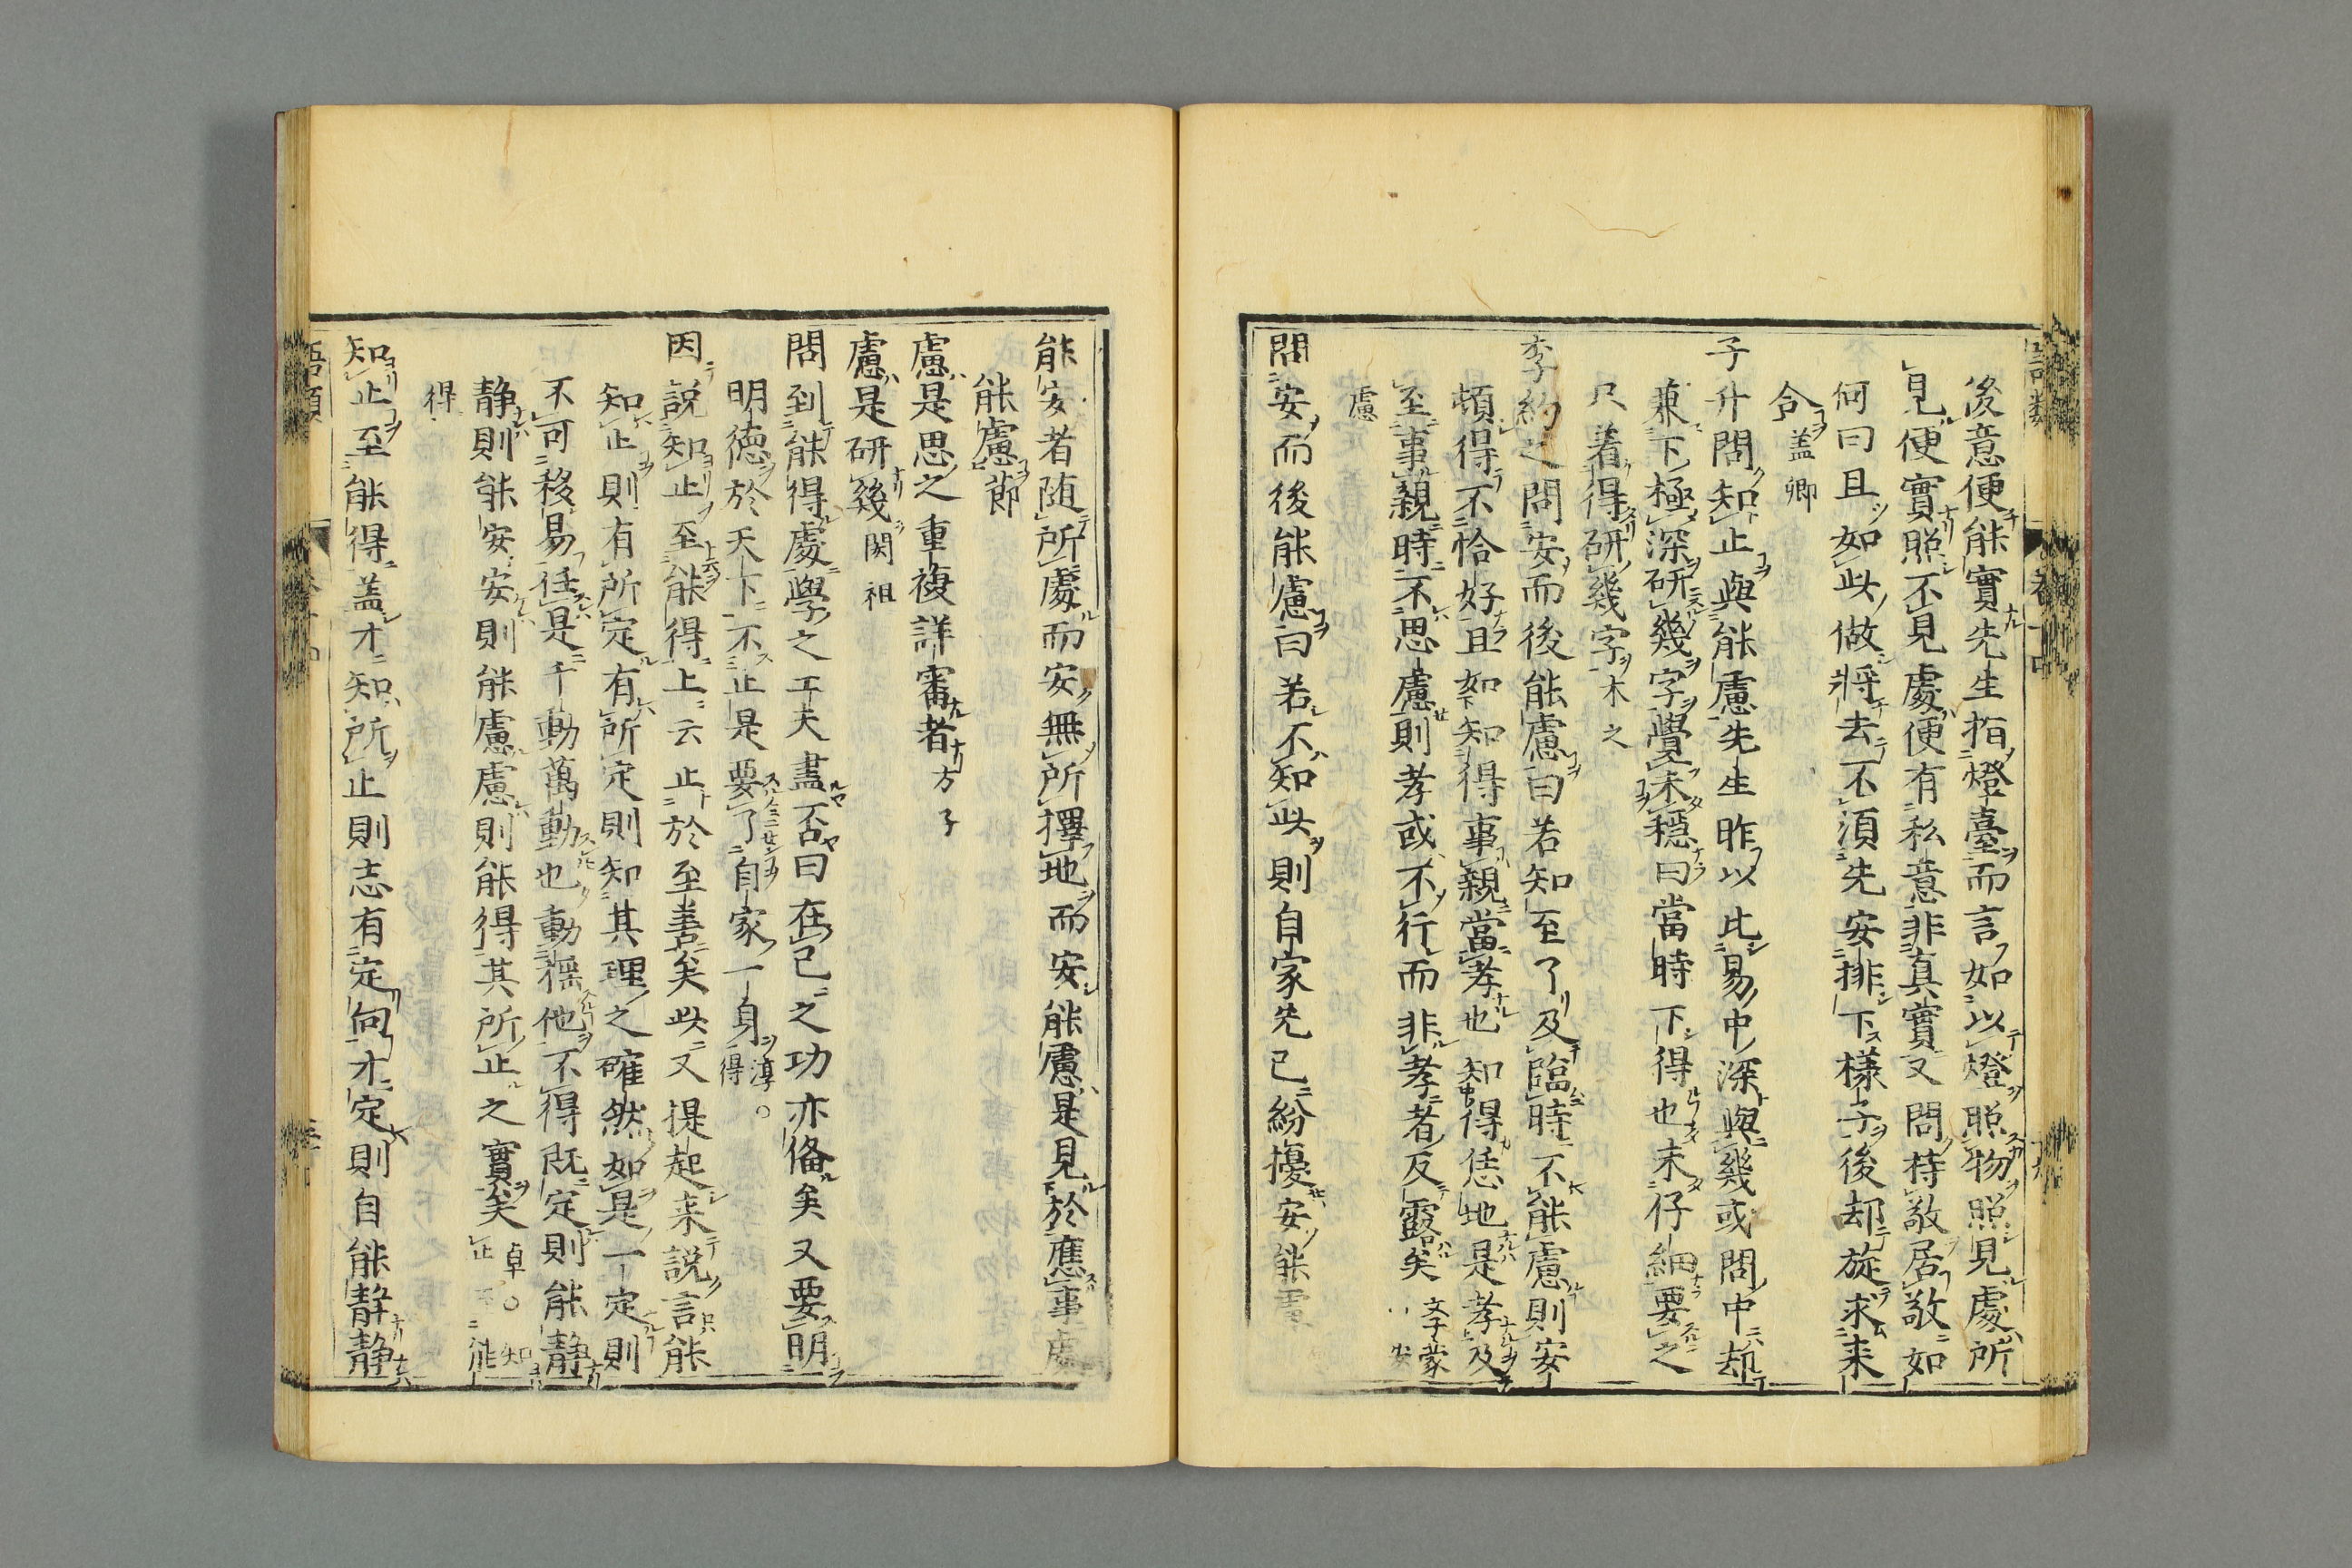 後意便能實先生指燈臺而言如以燈照物照見處所
見便實照不見處便有私意非真實又問持敬居敬如
何曰且如此做將去不須先安排下樣子後却旋求来
合蓋卿
子升問知止與能慮先生昨以比易中深與幾或問中却
兼下極深研幾字覺未穩曰當時下得也未仔細要之
只着得研幾字木之
李約之問安而後能慮曰若知至了及臨時不能慮則安
頓得不恰好且如知得事親當孝也知得恁地是孝及
至事親時不思慮則孝或不行而非孝者反露矣文子蒙安
慮
問安而後能慮曰若不知此則自家先已紛擾安能慮
能安者随所處而安無所擇地而安能慮是見於應事處
能慮節
慮是思之重複詳審者方子
慮是研幾閎祖
問到能得處學之工夫盡否曰在己之功亦俻矣又要明
明德於天下不止是要了自家一身淳。得
因說知止至能得上云止於至善矣此又提起来說言能
知止則有所定有所定則知其理之確然如是一定則
不可移易任是千動萬動也動揺他不得既定則能静
静則能安安則能慮慮則能得其所止之實矣卓。知止至能
得
知止至能得蓋才知所止則志有定向才定則自能静静
語類